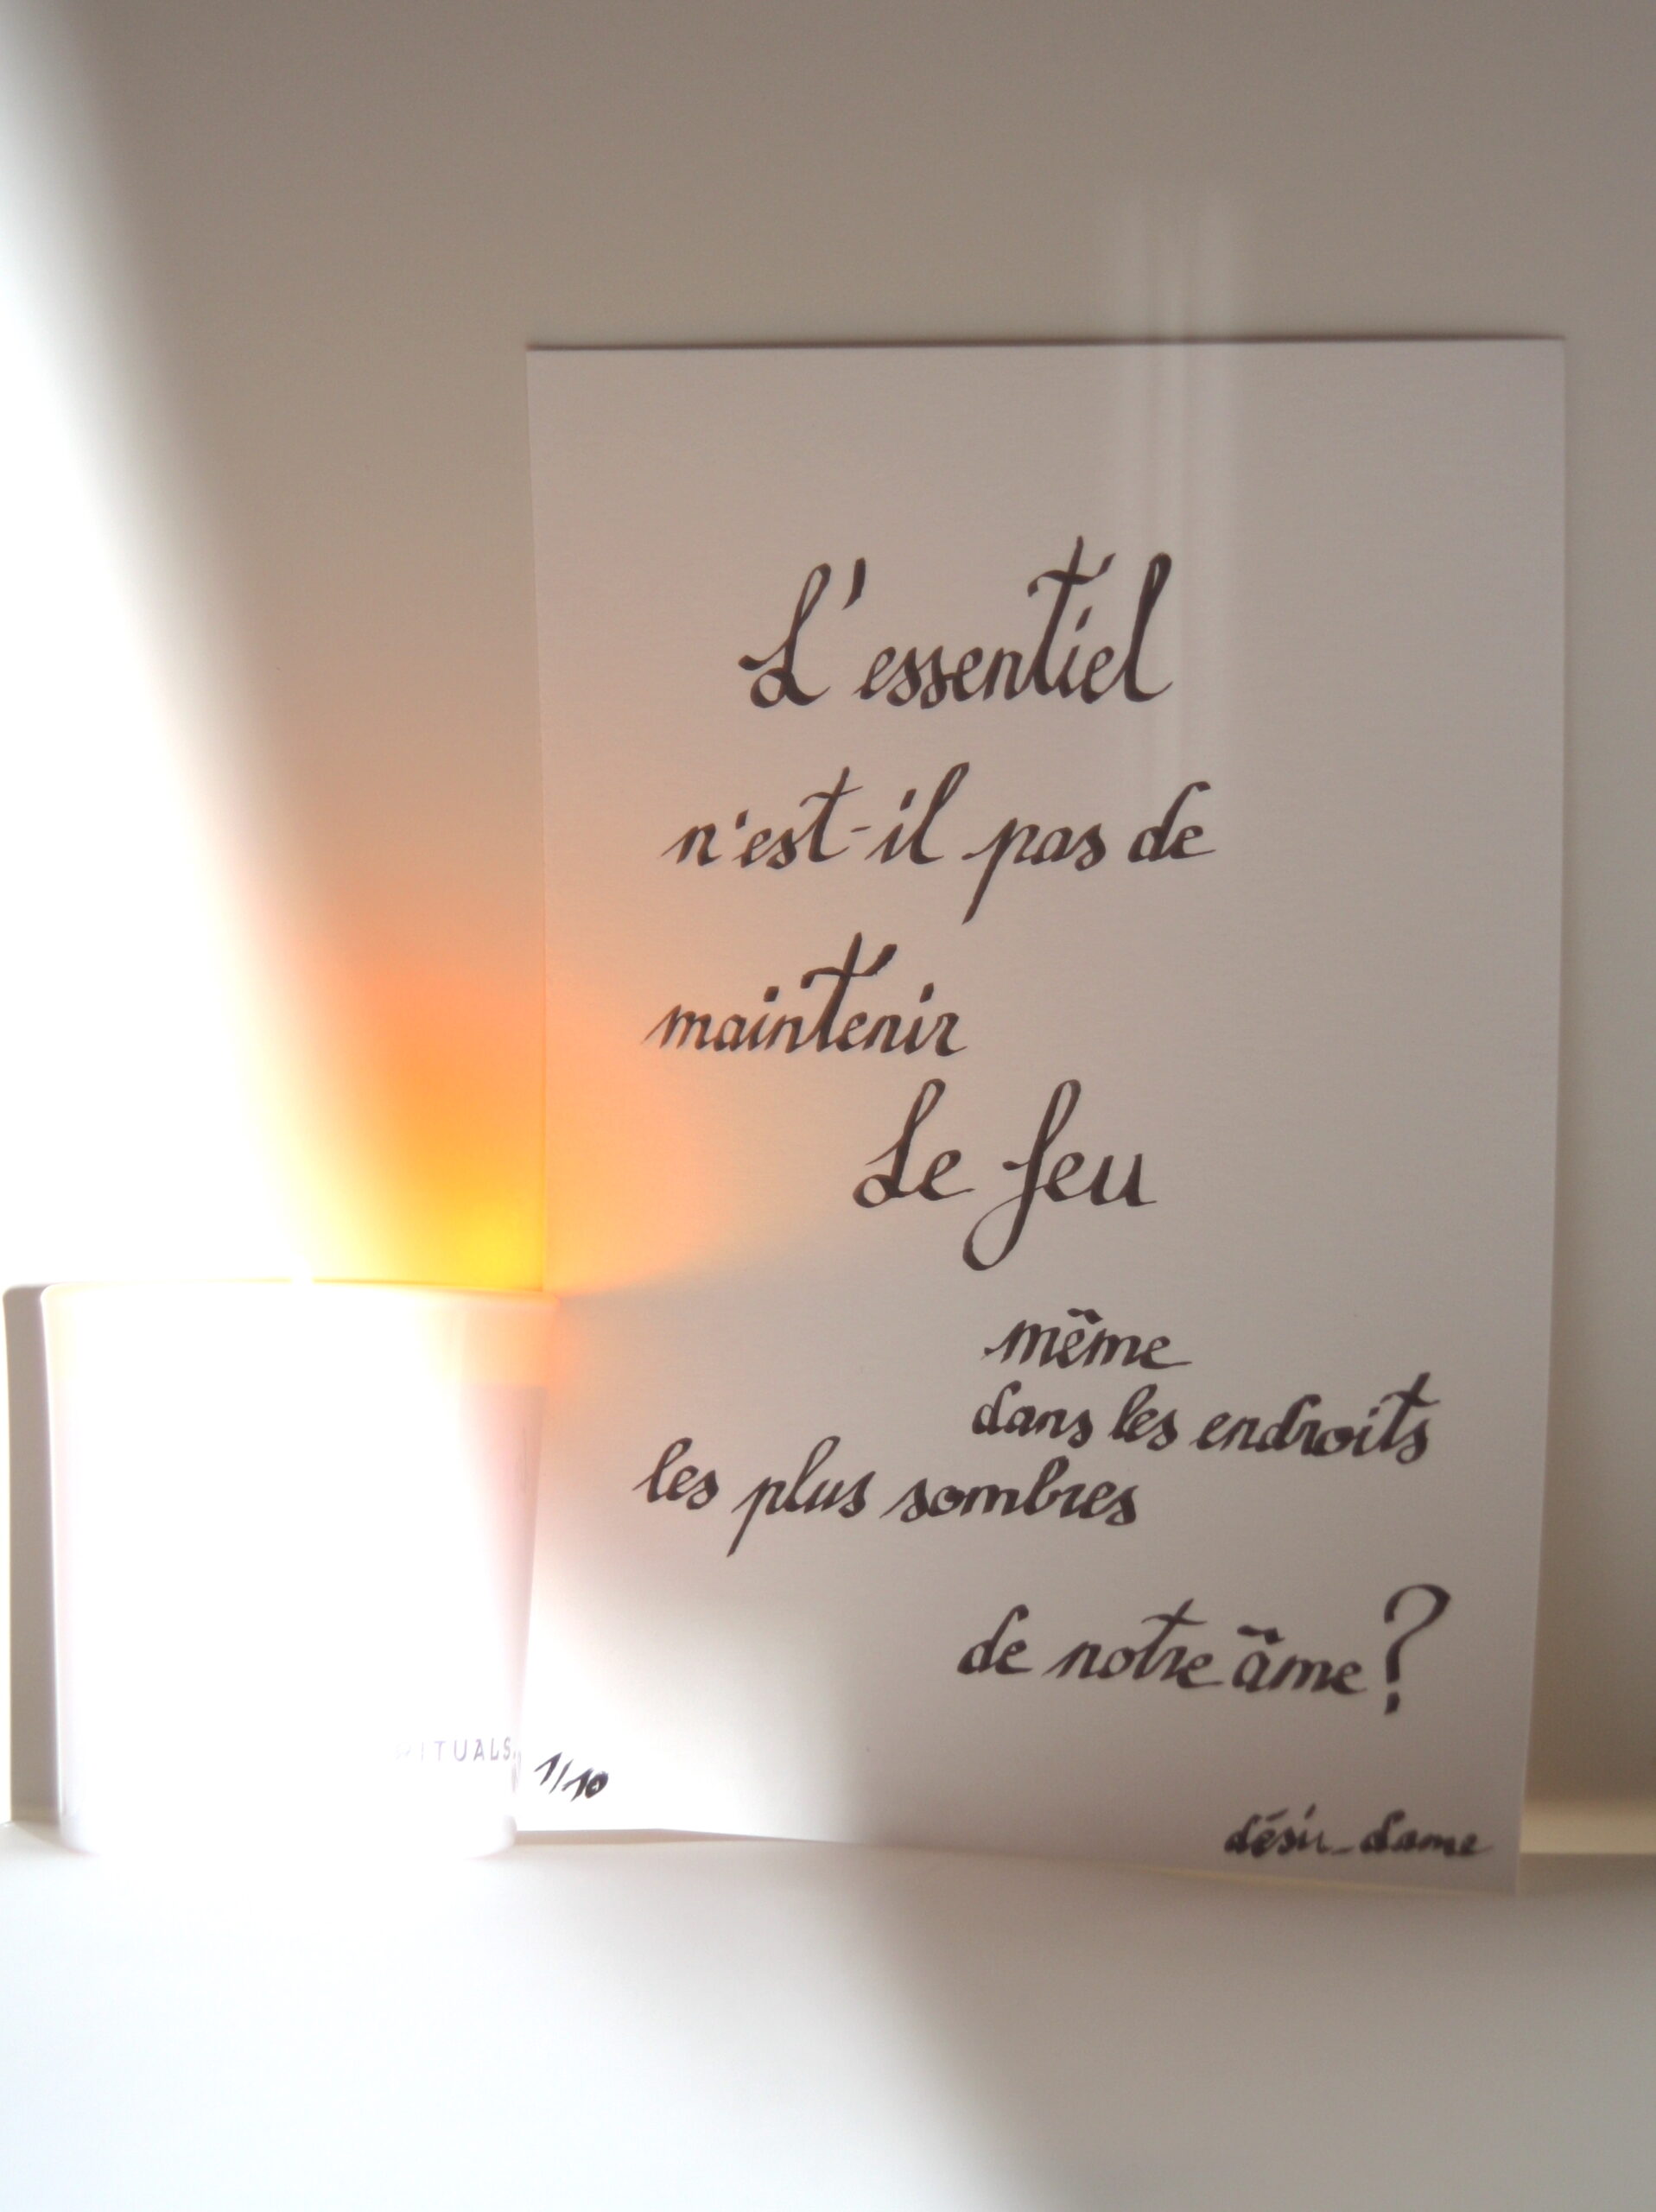 L'essentiel
n'est-il pas de
maintenir
Le feu
même
dans les endroits
les plus sombres
de notre âme ?
RITUALS
1/10
désir_dame